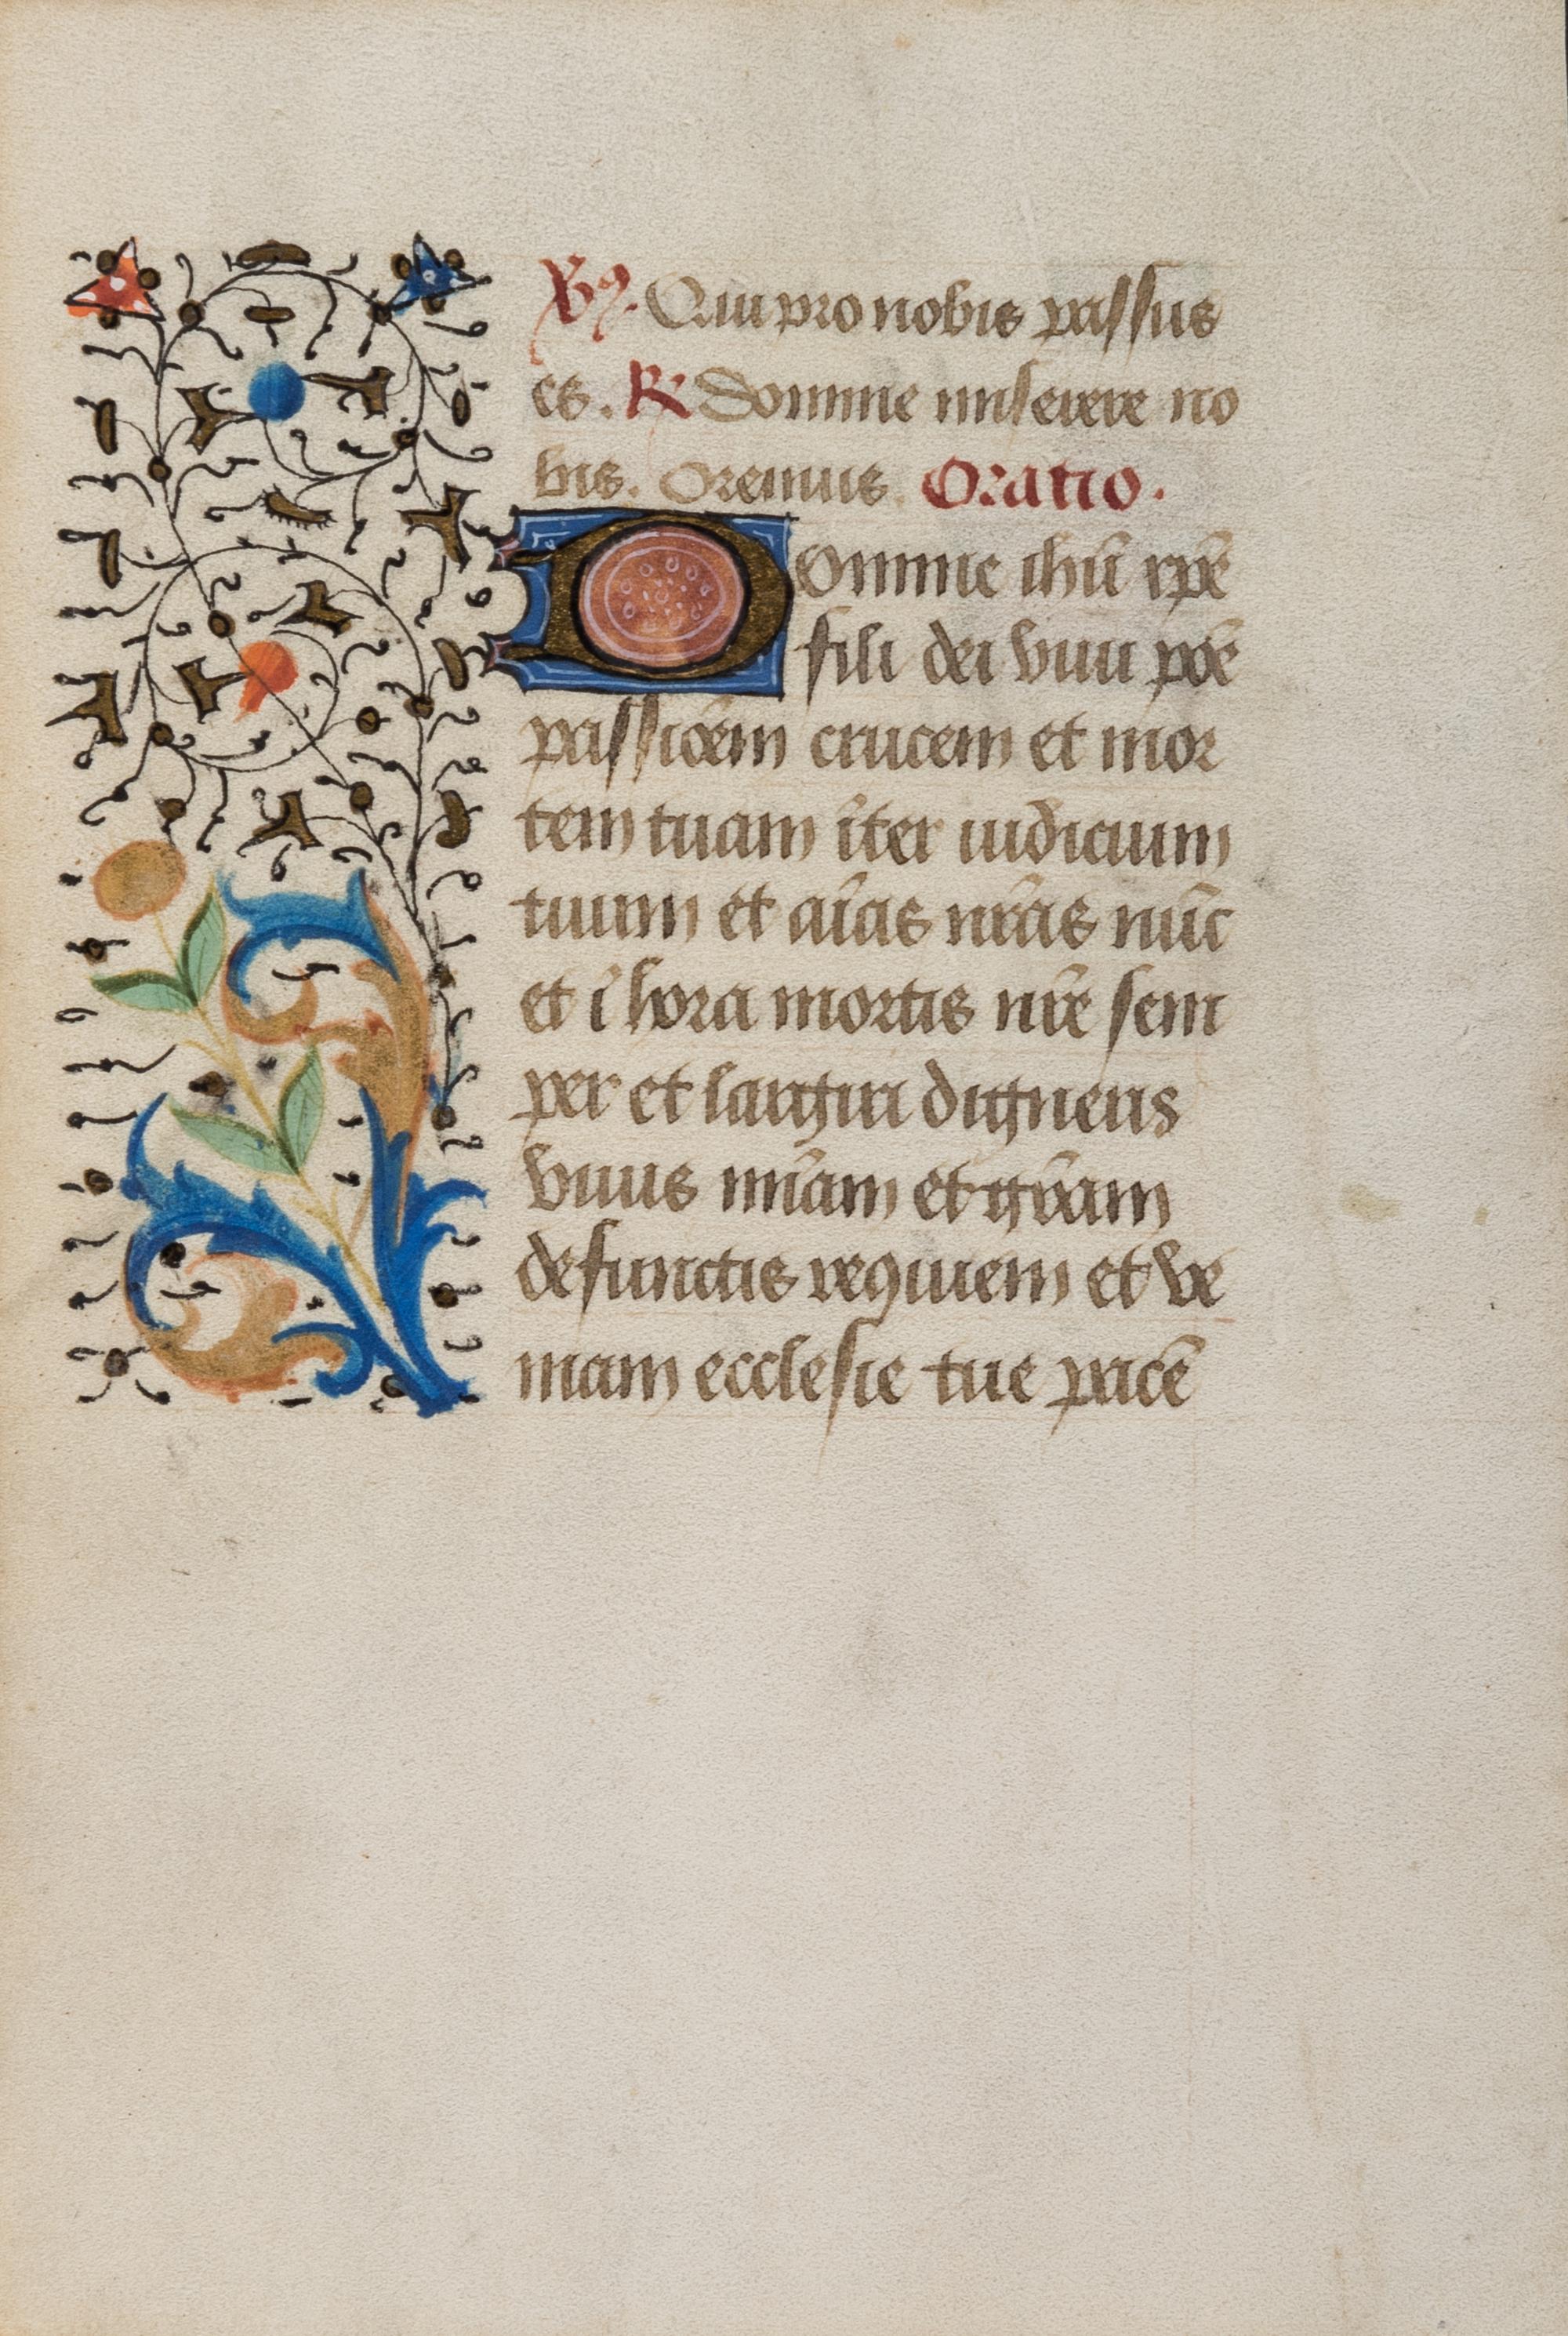 V. Qui pro nobis passus
es. R Domine miserere no
bis. Oremus. Oratio.
Domine ihū xpē
fili dei viui poē
passiōem crucem et mor
tem tuam īter iudicium
tuum et aīas nrās nūc
et ī hora mortis nrē sem
per et largiri digneris
viuis miāam et grāam
defunctis requiem et ve
niam ecclesie tue pacē